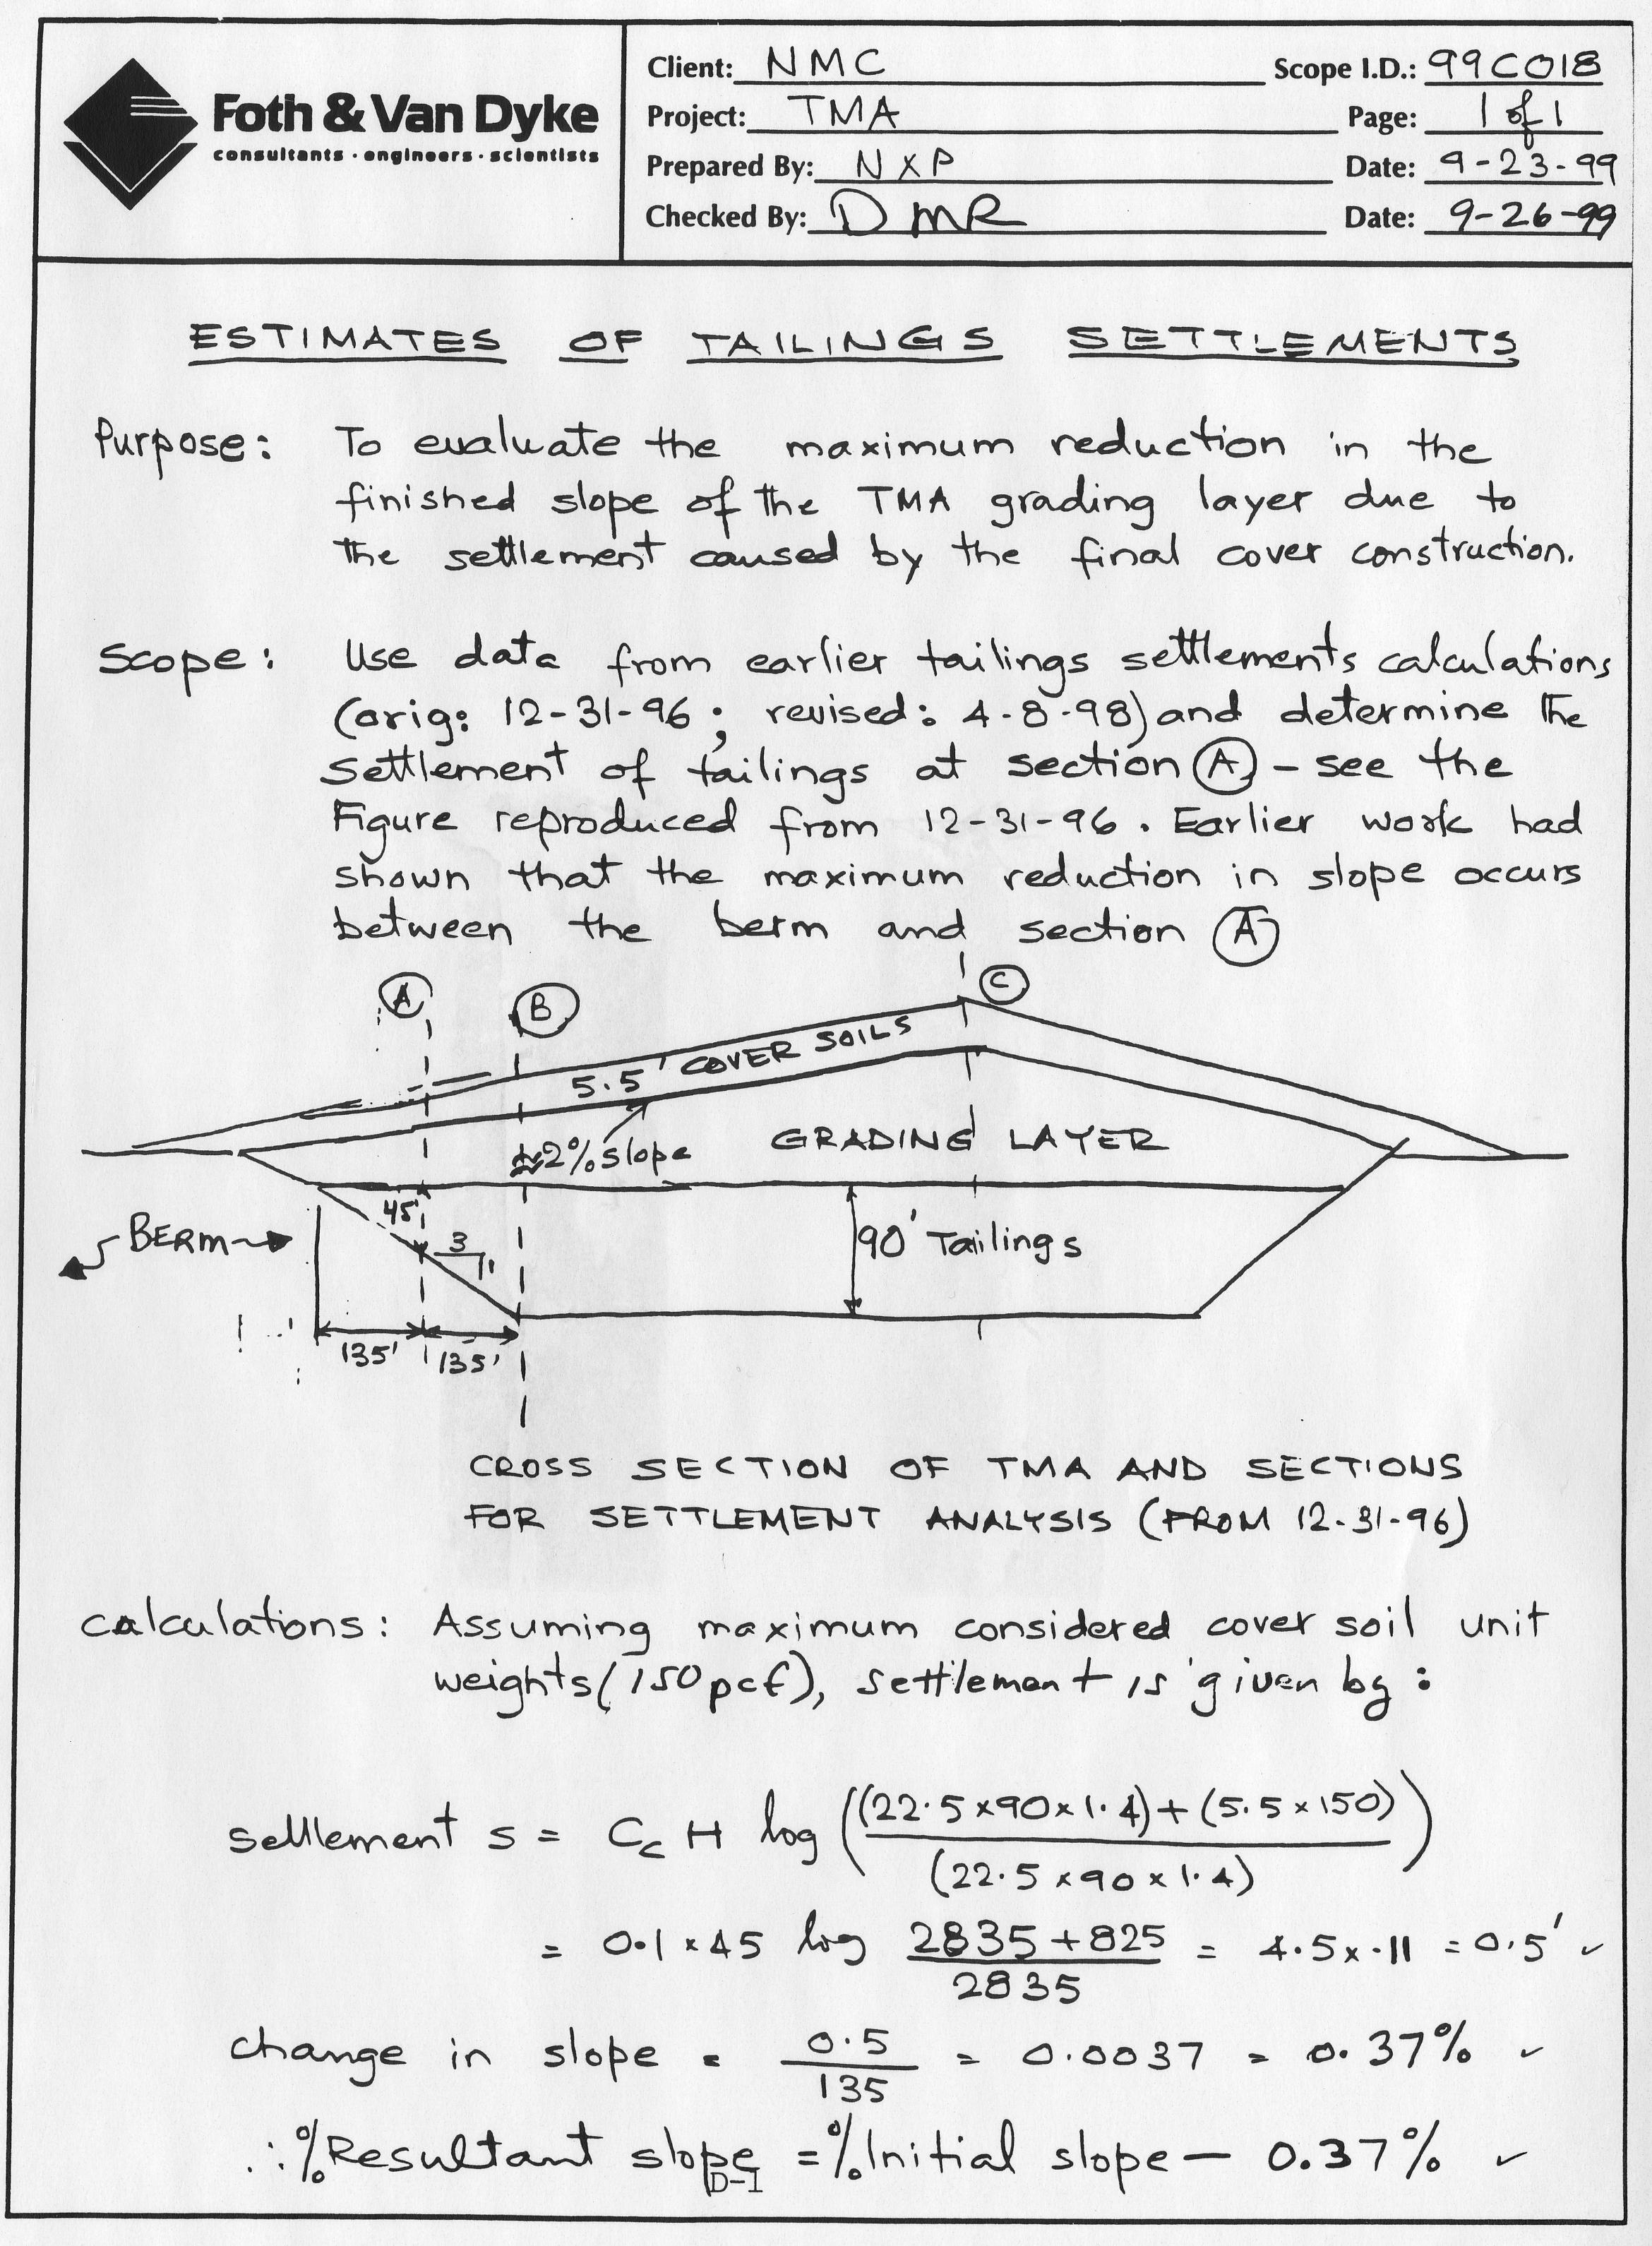 Foth & Van Dyke
consultants · engineers · scientists
Client: NMC
Scope I.D.: 99C018
Project: TMA
Page: 1 of 1
Prepared By: NXP
Date: 9-23-99
Checked By: DMR
Date: 9-26-99
ESTIMATES OF TAILINGS SETTLEMENTS
Purpose: To evaluate the maximum reduction in the
finished slope of the TMA grading layer due to
the settlement caused by the final cover construction.
Scope: Use data from earlier tailings settlements calculations
(orig: 12-31-96; revised: 4-8-98) and determine the
settlement of tailings at section (A) - see the
Figure reproduced from 12-31-96. Earlier work had
shown that the maximum reduction in slope occurs
between the berm and section (A)
A
B
C
5.5' COVER SOILS
≈2% slope
GRADING LAYER
45'
BERM
3/1
90' Tailings
135'
135'
CROSS SECTION OF TMA AND SECTIONS
FOR SETTLEMENT ANALYSIS (FROM 12-31-96)
Calculations: Assuming maximum considered cover soil unit
weights (150pcf), settlement is given by:
settlement s = Cc H log ((22.5x90x1.4)+(5.5x150) / (22.5x90x1.4))
= 0.1x45 log 2835+825 / 2835 = 4.5x.11 = 0.5' ✓
change in slope = 0.5 / 135 = 0.0037 = 0.37% ✓
∴ % Resultant slope = % Initial slope — 0.37% ✓
D-1